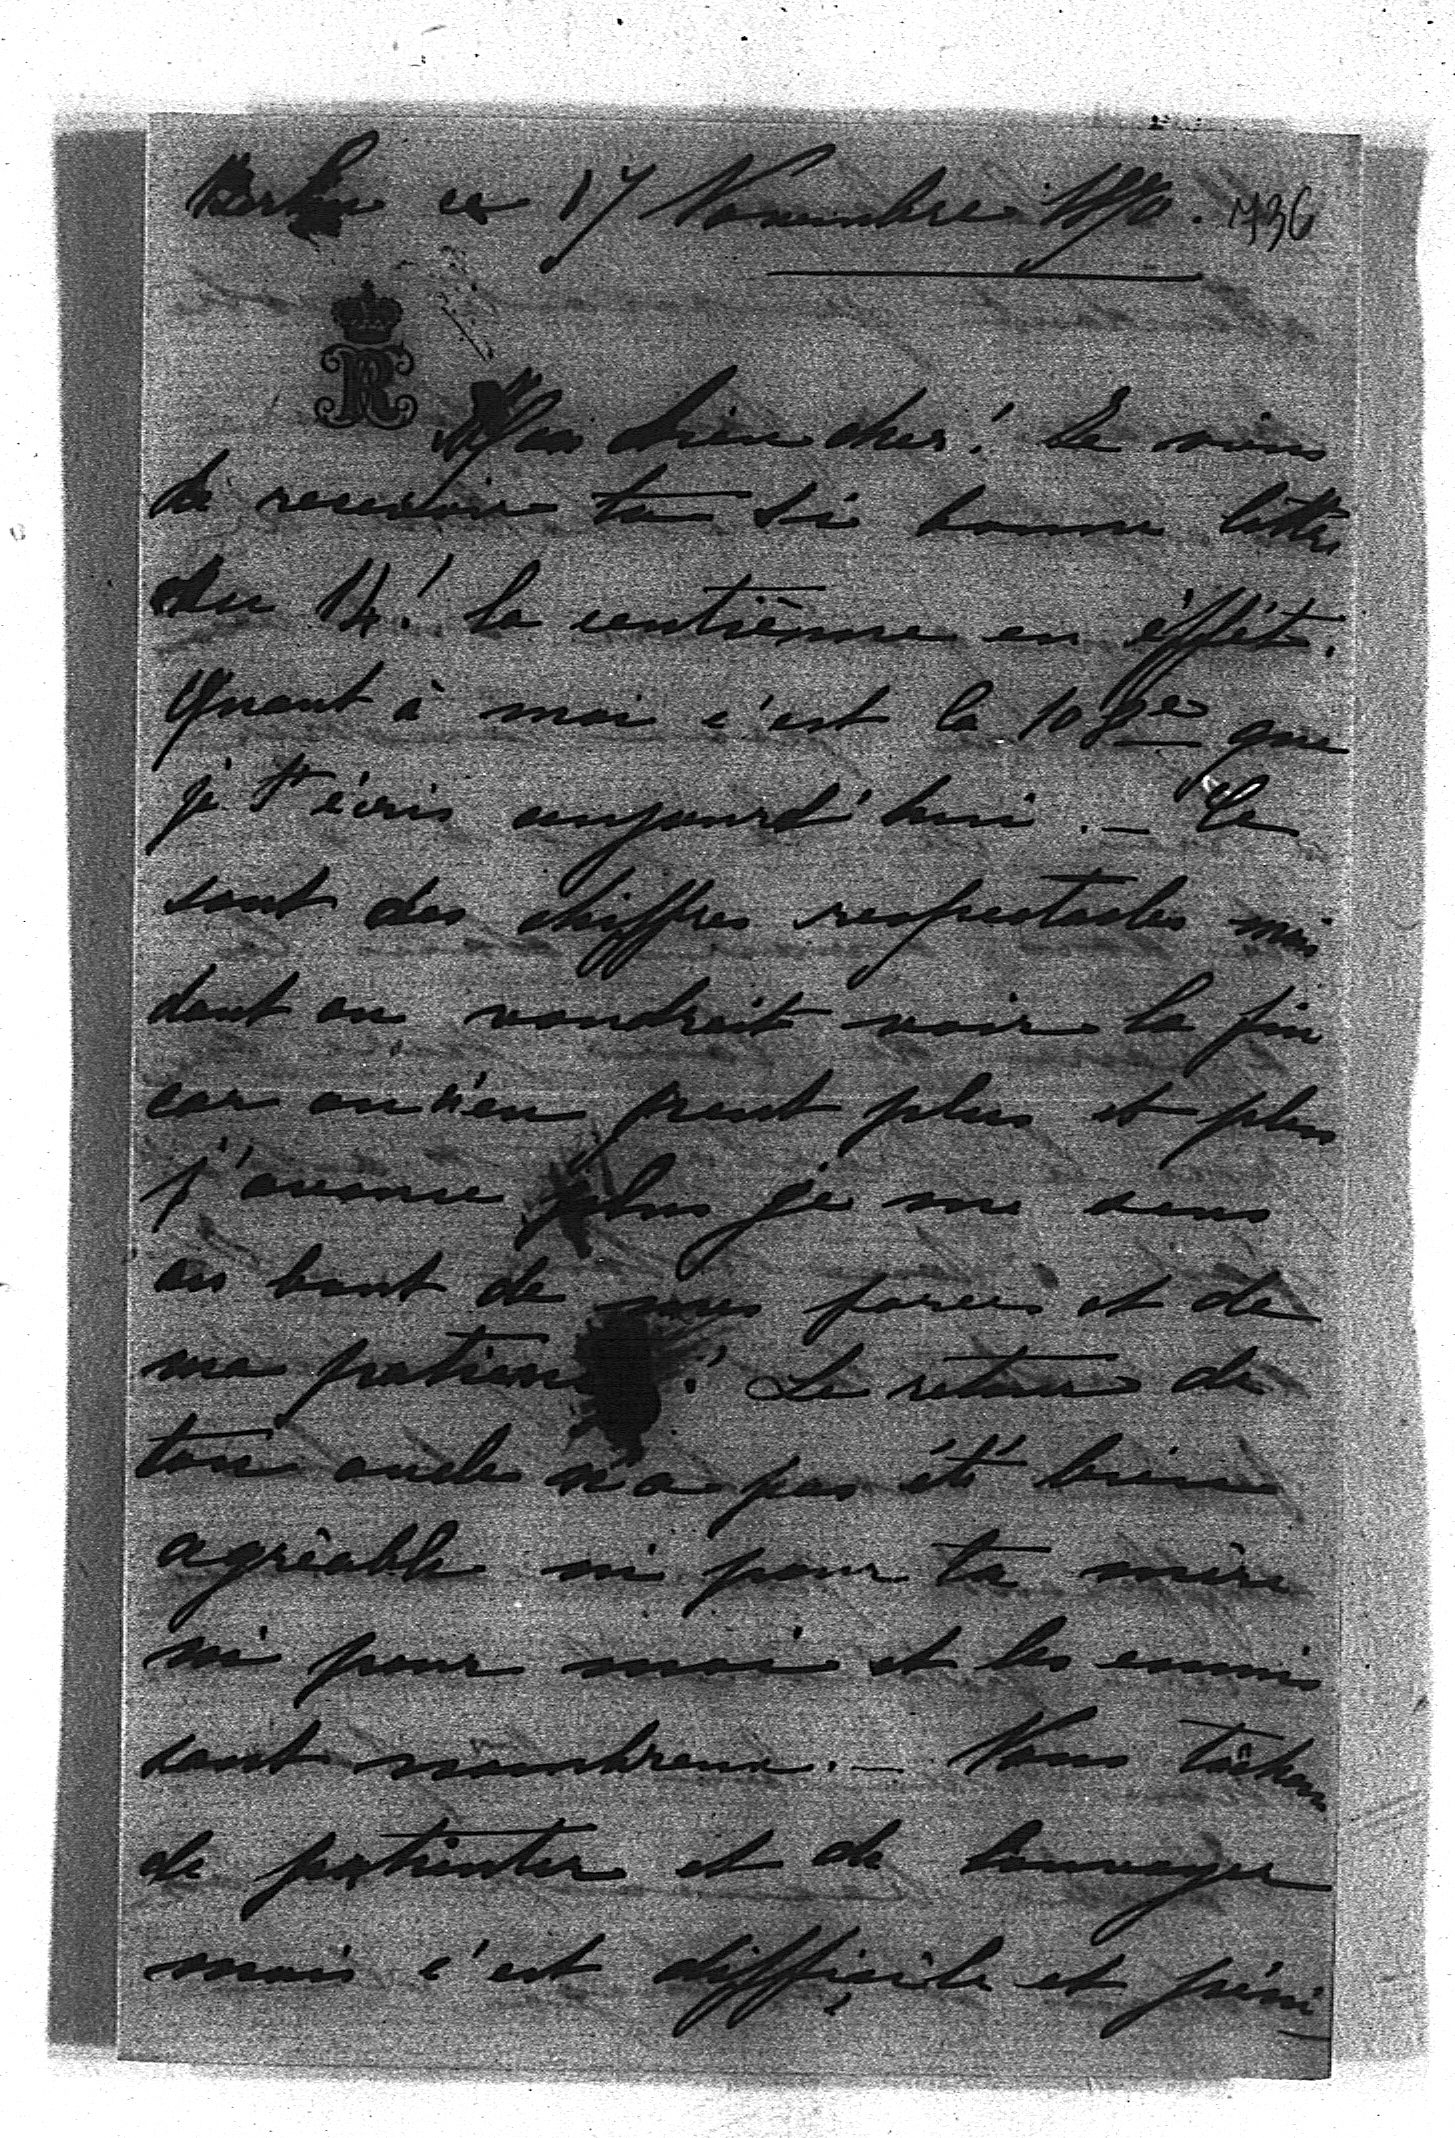 Berlin ce 17 Novembre 1870. 436
R
Mon bien cher! Je viens
de recevoir ta si bonne lettre
du 14! la centième en éffét.
Quant à moi c'est la 108e que
je t'écris aujourd'hui. — Ce
sont des chiffres respectacles mais
dont on voudrait voir la fin
car on n'en peut plus et plus
j'avance plus je me sens
au bout de mes forces et de
ma patience! Le retour de
ton oncle n'a pas été bien
agréable ni pour ta mère
ni pour moi et les ennuis
sont nombreux. — Nous tâchons
de patienter et de louvoyer
mais c'est difficile et péni-